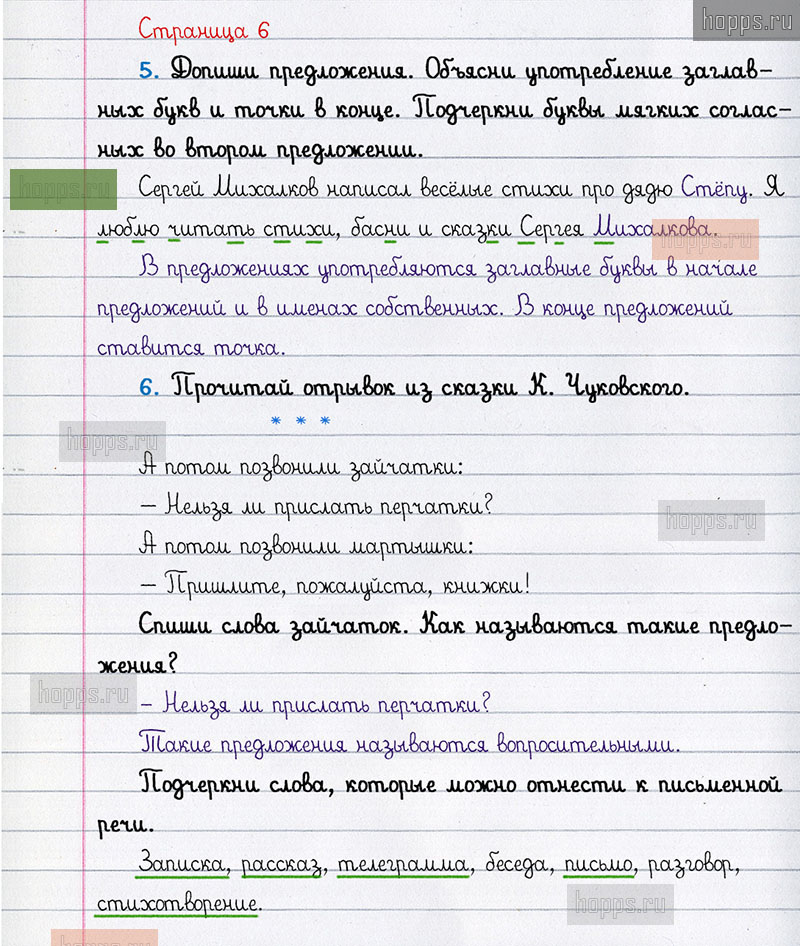 hopps.ru
Страница 6
5. Допиши предложения. Объясни употребление заглав-
ных букв и точки в конце. Подчеркни буквы мягких соглас-
ных во втором предложении.
hopps.ru
Сергей Михалков написал весёлые стихи про дядю Стёпу. Я
люблю читать стихи, басни и сказки Сергея Михалкова.
hopps.ru
В предложениях употребляются заглавные буквы в начале
предложений и в именах собственных. В конце предложений
ставится точка.
6. Прочитай отрывок из сказки К. Чуковского.
* * *
hopps.ru
А потом позвонили зайчатки:
– Нельзя ли прислать перчатки?
hopps.ru
А потом позвонили мартышки:
– Пришлите, пожалуйста, книжки!
Спиши слова зайчаток. Как называются такие предло-
жения?
hopps.ru
– Нельзя ли прислать перчатки?
Такие предложения называются вопросительными.
Подчеркни слова, которые можно отнести к письменной
речи.
Записка, рассказ, телеграмма, беседа, письмо, разговор,
стихотворение.
hopps.ru
hopps.ru